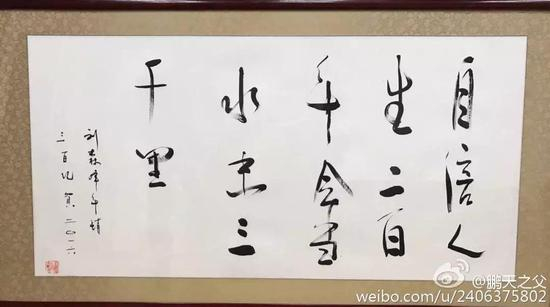 自信人
生二百
年会当
水击三
千里
刘森峰年
三百 二〇一六
@鹏天之父
weibo.com/u/2406375802